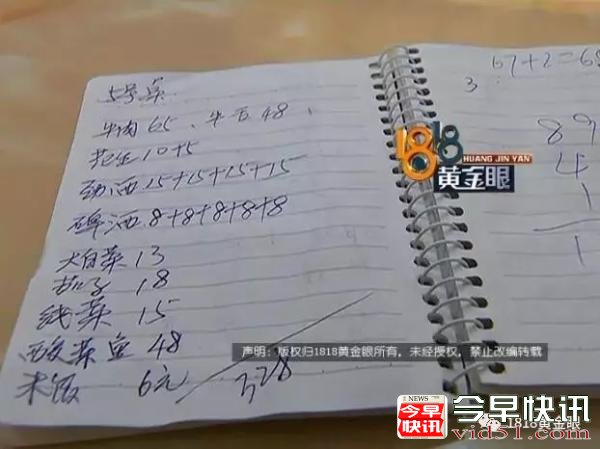 5号桌
牛肉65、牛舌48、
花生10+5
劲酒15+15+15+15
啤酒8+8+8+8+8
大白菜13
茄子18
线菜15
酸菜鱼48
米饭 6元
328
67+2=6
3
89
4
1
1
1818
HUANG JIN YAN
黄金眼
声明:版权归1818黄金眼所有,未经授权,禁止改编转载
1 NEWS
今早快讯
今早快讯
1818黄金眼
vid51.com